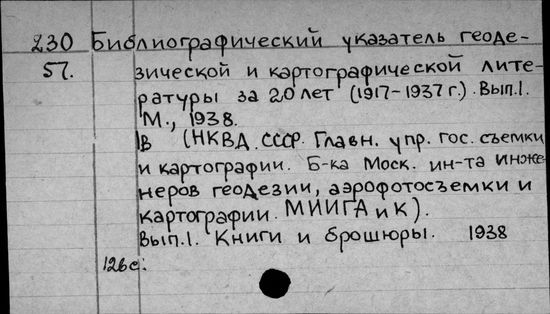 230 Библиографический указатель геоде-
57. зической и картографической лите-
ратуры за 20 лет (1917-1937 г.). Вып.1.
М., 1938.
В (НКВД. СССР. Главн. упр. гос. съемки
и картографии. Б-ка Моск. ин-та инже-
неров геодезии, аэрофотосъемки и
картографии. МИИГА и К).
Вып.1. Книги и брошюры. 1938
126 с.